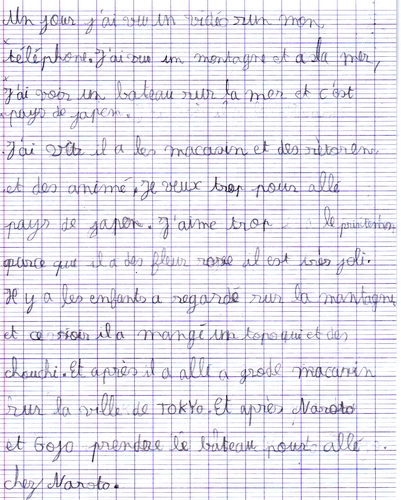 Un jour j'ai vu un vidéo sur mon
téléphone. J'ai vu un montagne et a la mer,
J'ai voir un bateau sur la mer et c'est
pays de japen.
J'ai il a les macasin et des rètoren
et des animé. Je veux trop pour allé
pays de japen. J'aime trop le printention
parce que il a des fleur rose il est très joli.
Il y a les enfants a regardé sur la mantagne
et ce soir il a mangé un topoqui et des
chouchi. Et après il a allé a grode macasin
sur la ville de TOKYO. Et après Naroto
et Gojo prendre le bateau pour allé
chez Naroto.